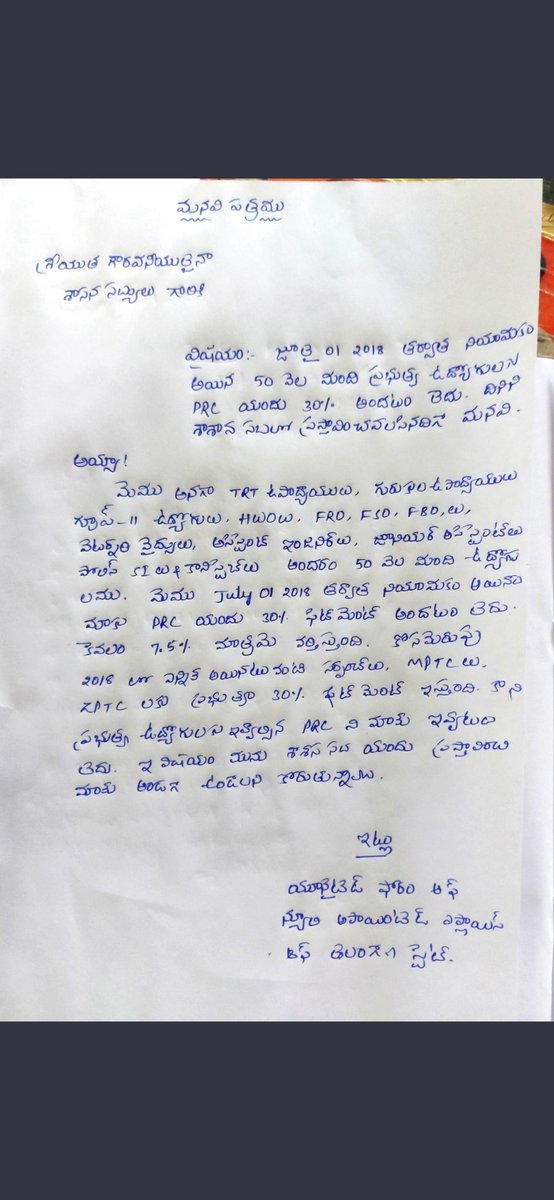 మనవి పత్రము
శ్రీయుత గౌరవనీయులైనా
శాసన సభ్యులు గారికి
విషయం:- జూలై 01 2018 తర్వాత నియామకం
అయిన 50 వేల మంది ప్రభుత్వ ఉద్యోగులకు
PRC యందు 30% అందటం లేదు. దీనిని
శాశాన సభలో ప్రస్తావించవలసినదిగా మనవి.
అయ్యా!
మేము అనగా TRT ఉపాధ్యాయులు, గురుకుల ఉపాధ్యాయులు
గ్రూప్-II ఉద్యోగులు, HWOలు, FRO, FSO, FBO,లు,
వెటర్నరి వైద్యులు, అసిస్టెంట్ ఇంజనీర్‌లు, జూనియర్ అసిస్టెంట్‌లు
పోలిస్ SI లు & కానిస్టేబుల్‌లు అందరం 50 వేల మంది ఉద్యోగు
లము. మేము July 01 2018 తర్వాత నియామకం అయినా
మాకు PRC యందు 30% ఫిట్‌మెంట్ అందటం లేదు.
కేవలం 7.5% మాత్రమే వర్తిస్తుంది. కొసమెరుపు
2018 లో ఎన్నిక అయినటువంటి సర్పంచ్‌లు, MPTC లు,
ZPTC లకు ప్రభుత్వం 30% ఫిట్‌మెంట్ ఇస్తుంది. కాని
ప్రభుత్వ ఉద్యోగులకు ఇవ్వాల్సిన PRC ని మాకు ఇవ్వటం
లేదు. ఇ విషయం మీరు శాసన సభ యందు ప్రస్తావించి
మాకు అండగా ఉండాలని కోరుతున్నాము.
ఇట్లు
యునైటెడ్ ఫోరం ఆఫ్
న్యూలి అపాయింటెడ్ ఎంప్లాయిస్
ఆఫ్ తెలంగాణ స్టేట్.